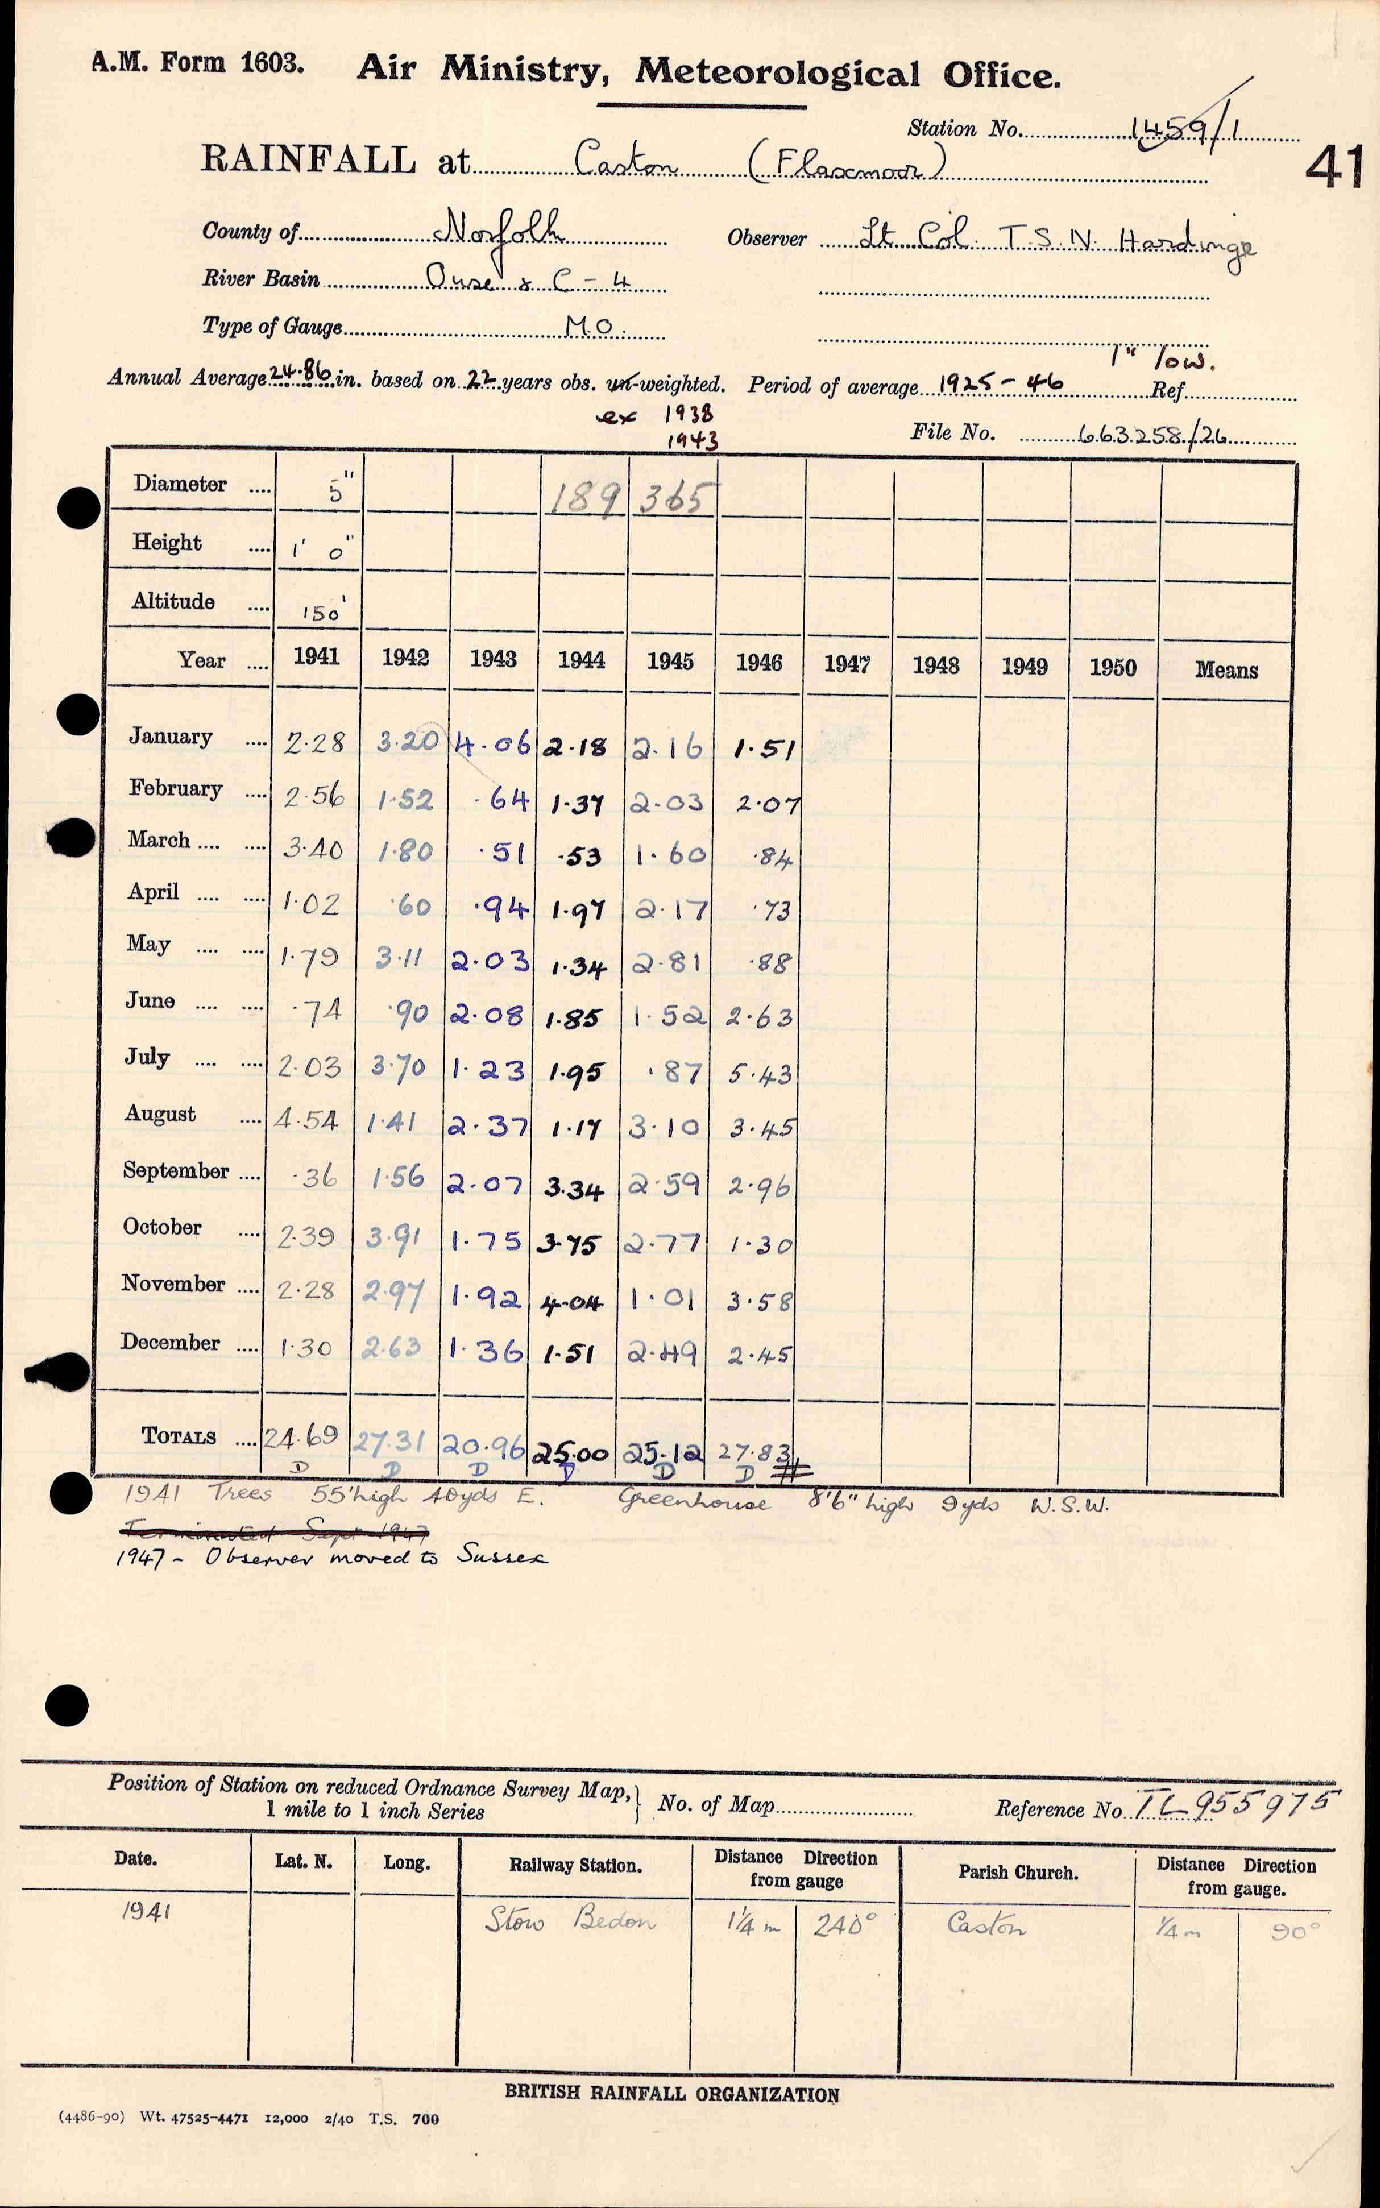 A.M. Form 1603. Air Ministry, Meteorological Office.
Station No. 1459/1
RAINFALL at Caston (Flaxmoor)
41
County of Norfolk Observer Lt Col. T.S.N. Hardinge
River Basin Ouse & C - 4
Type of Gauge M.O.
1" low.
Annual Average 24.86 in. based on 22 years obs. un-weighted. Period of average 1925-46 Ref.
ex 1938
1943
File No. 663258/26
Diameter .... 5" 189 365
Height .... 1' 0"
Altitude .... 150'
Year .... 1941 1942 1943 1944 1945 1946 1947 1948 1949 1950 Means
January .... 2.28 3.20 4.06 2.18 2.16 1.51
February .... 2.56 1.52 .64 1.37 2.03 2.07
March .... .... 3.40 1.80 .51 .53 1.60 .84
April .... .... 1.02 .60 .94 1.97 2.17 .73
May .... .... 1.79 3.11 2.03 1.34 2.81 .88
June .... .... .74 .90 2.08 1.85 1.52 2.63
July .... .... 2.03 3.70 1.23 1.95 .87 5.43
August .... 4.54 1.41 2.37 1.17 3.10 3.45
September .... .36 1.56 2.07 3.34 2.59 2.96
October .... 2.39 3.91 1.75 3.75 2.77 1.30
November .... 2.28 2.97 1.92 4.04 1.01 3.58
December .... 1.30 2.63 1.36 1.51 2.49 2.45
TOTALS .... 24.69 27.31 20.96 25.00 25.12 27.83
D D D D D D
1941 Trees 55' high 40yds E. Greenhouse 8'6" high 9yds W.S.W.
Terminated Sept 1947
1947 - Observer moved to Sussex
Position of Station on reduced Ordnance Survey Map, 1 mile to 1 inch Series } No. of Map Reference No. TL 955975
Date. Lat. N. Long. Railway Station. Distance Direction from gauge Parish Church. Distance Direction from gauge.
1941 Stow Bedon 1¼ m 240° Caston ¼ m 90°
BRITISH RAINFALL ORGANIZATION
(4486-90) Wt. 47525-4471 12,000 2/40 T.S. 700